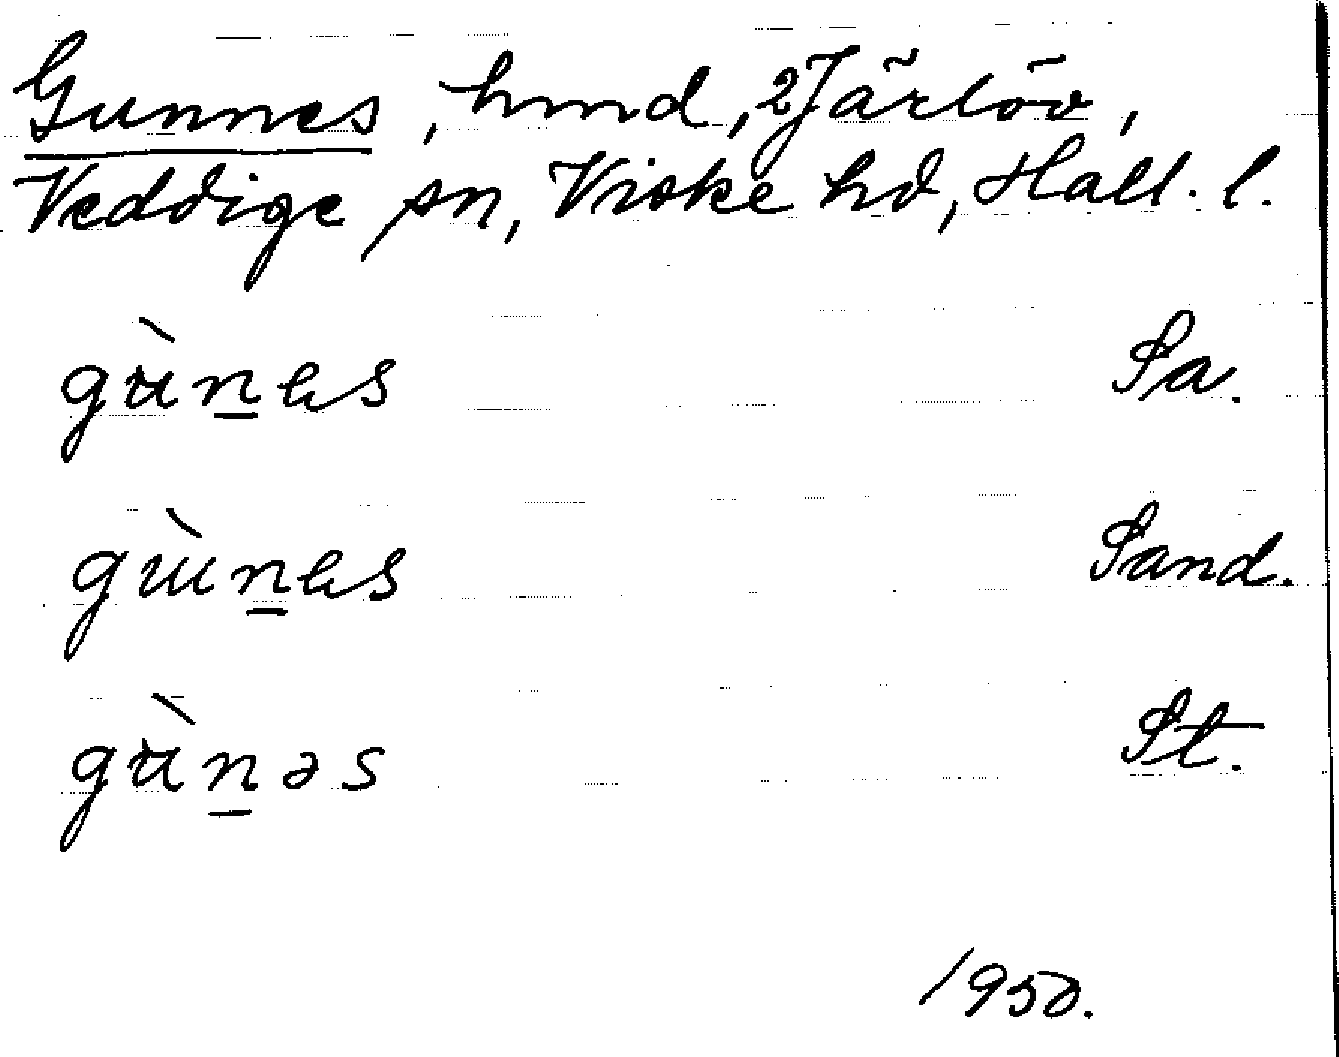 Gunnes, hmd, 2 Järlöv,
Veddige sn, Viske hd, Hall. l.
gùn̲es Sa.
gùn̲es Sand.
gùn̲əs St.
1950.